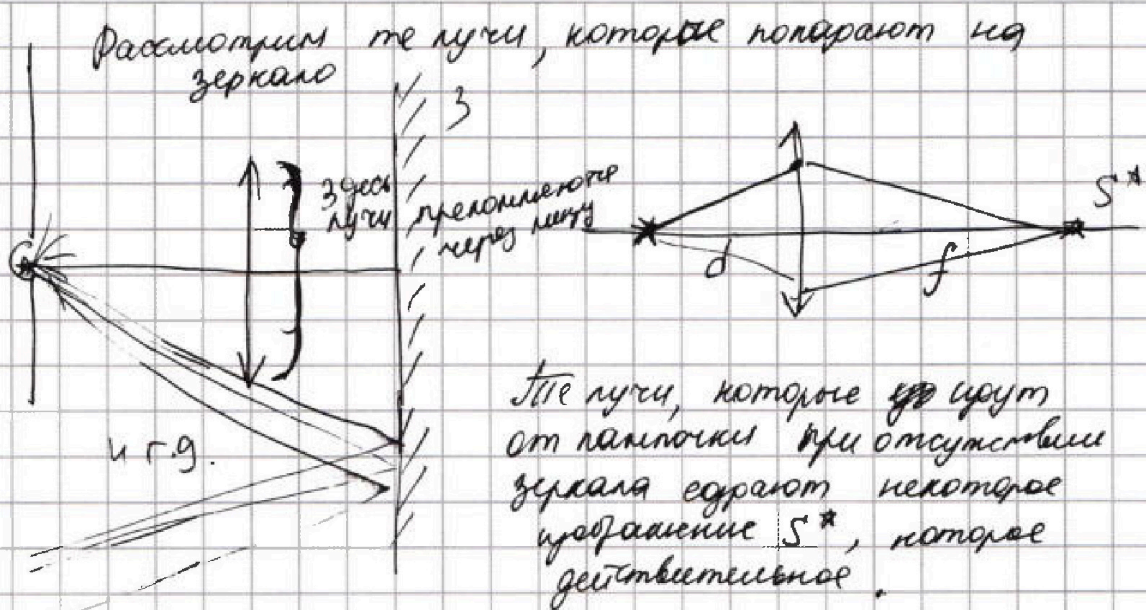 Рассмотрим те лучи, которые попадают на
зеркало
З
Здесь
лучи преломляются
через линзу
S*
d
f
и т.д.
Те лучи, которые идут
от лампочки при отсутствии
зеркала создают некоторое
изображение S*, которое
действительное.